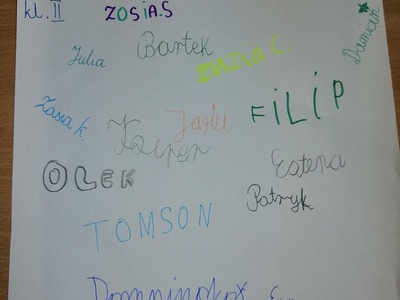 kl. II
ZOSIA.S
Julia
Bartek
ZUZIA C.
Damian
Zosia K.
Kacper
Jasiu
FILIP
OLEK
Estera
Patryk
TOMSON